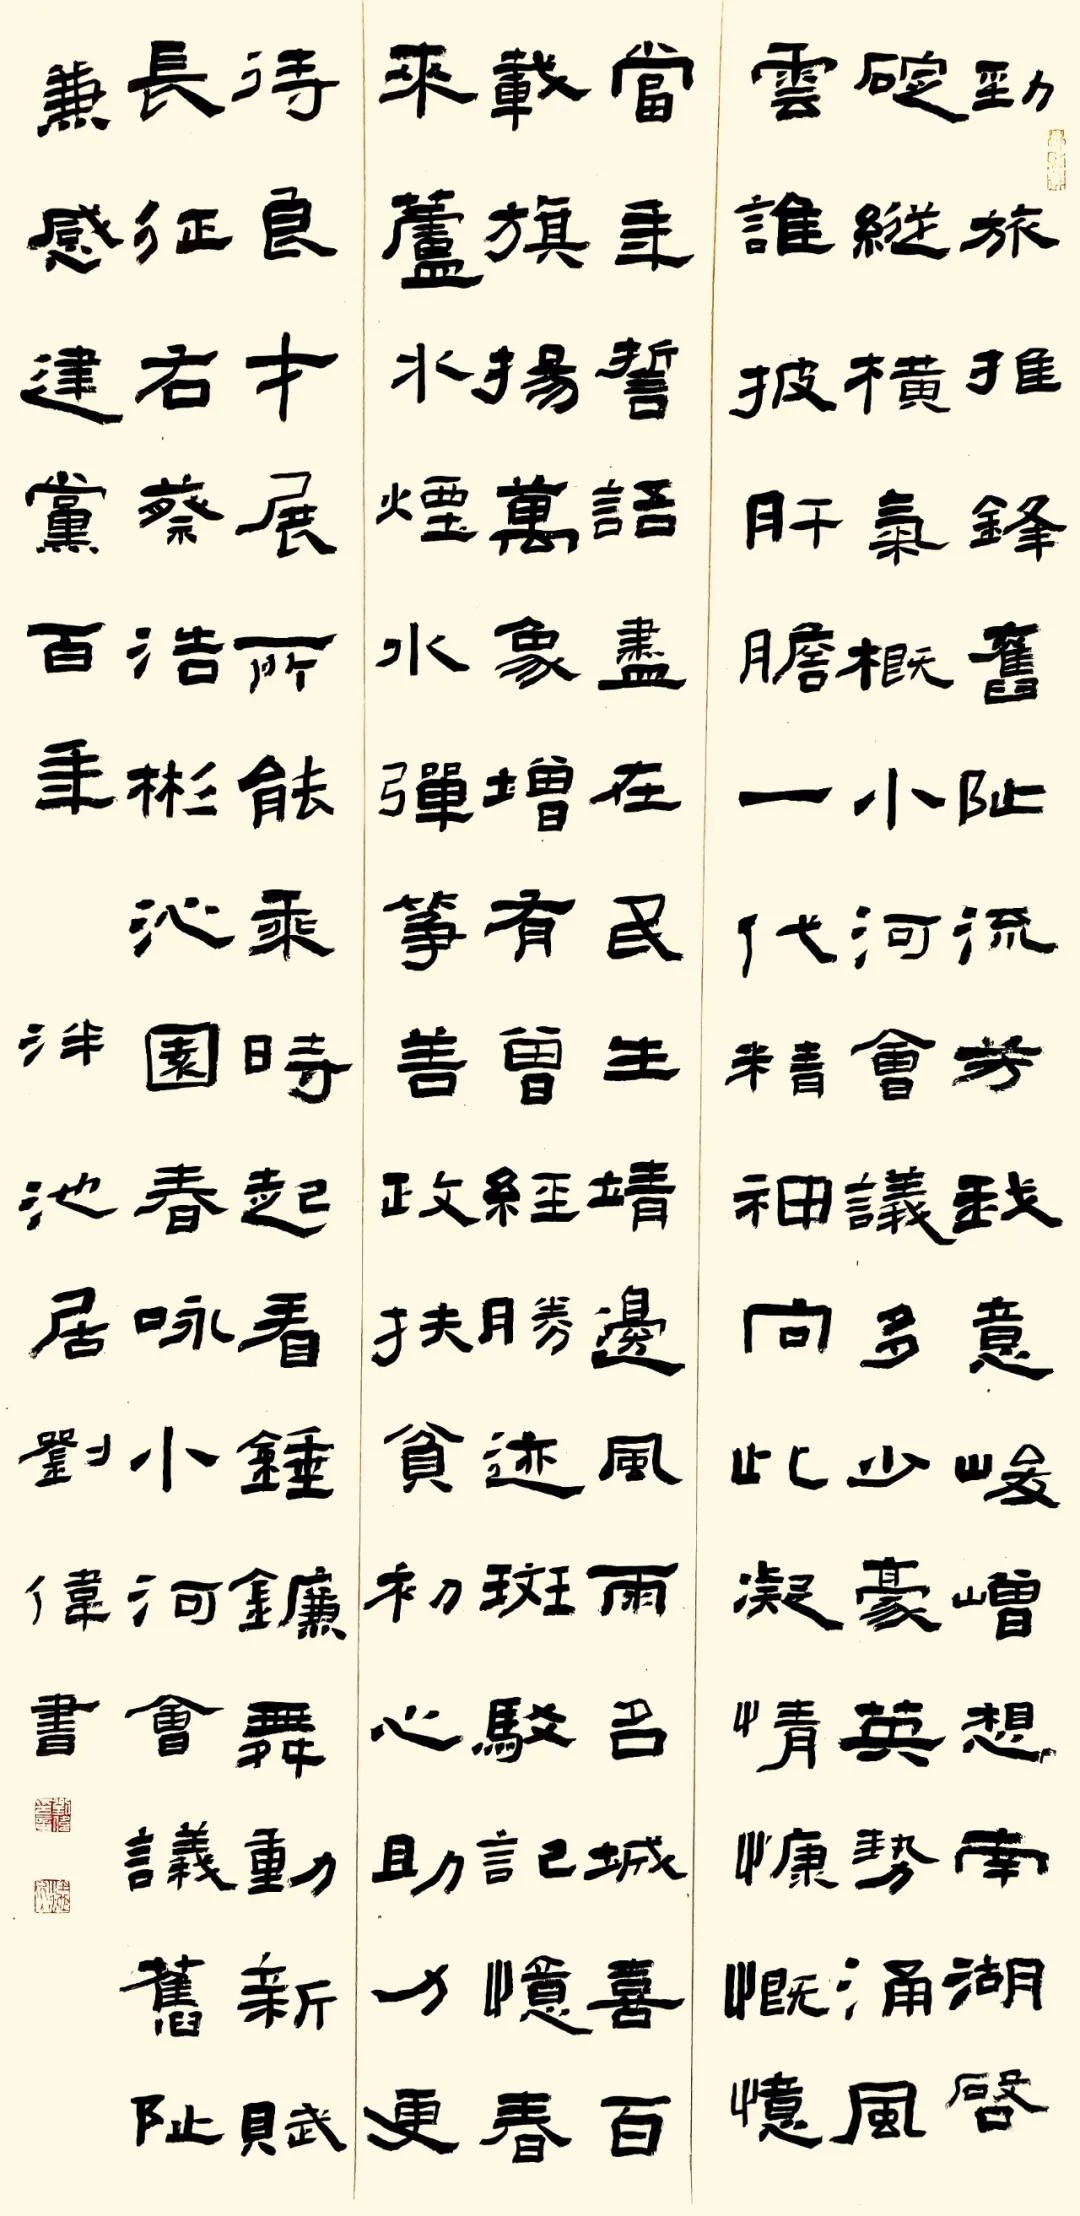 勁旅推鋒舊阯流芳我意崚嶒想南湖啓
碇縱橫氣概小河會議多少豪英勢涌風
雲誰披肝膽一代精神向此凝情慷慨憶
當年誓語盡在民生靖邊風雨名城喜百
載旗揚萬象增有曾經勝迹斑駁記己憶春
來蘆水煙水彈箏善政扶貧初心助力更
待良才展所能乘時起看錘鐮舞動新賦
長征右蔡浩彬沁園春咏小河會議舊阯
兼感建黨百年 泮池居劉偉書